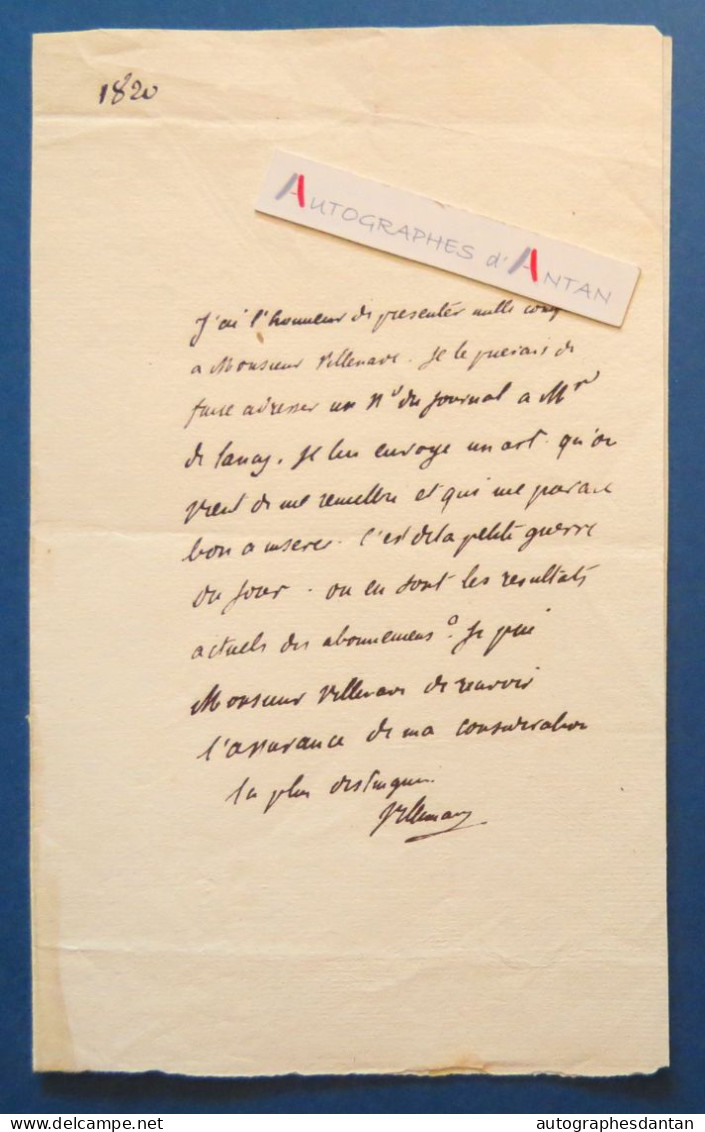 1820
AUTOGRAPHES d'ANTAN
J'ai l'honneur de presenter mille
a Monsieur Villenave. Je le prierais de
faire adresser un N° du journal a Mr
de Je lui envoye un art. qu'on
vient de me remettre et qui me parait
bon a inserer. C'est de la petite guerre
du jour. ou en sont les resultats
actuels des abonnemens? Je prie
Monsieur Villenave de recevoir
l'assurance de ma consideration
la plus distinguee.
Villemain
delcampe.net
autographesdantan